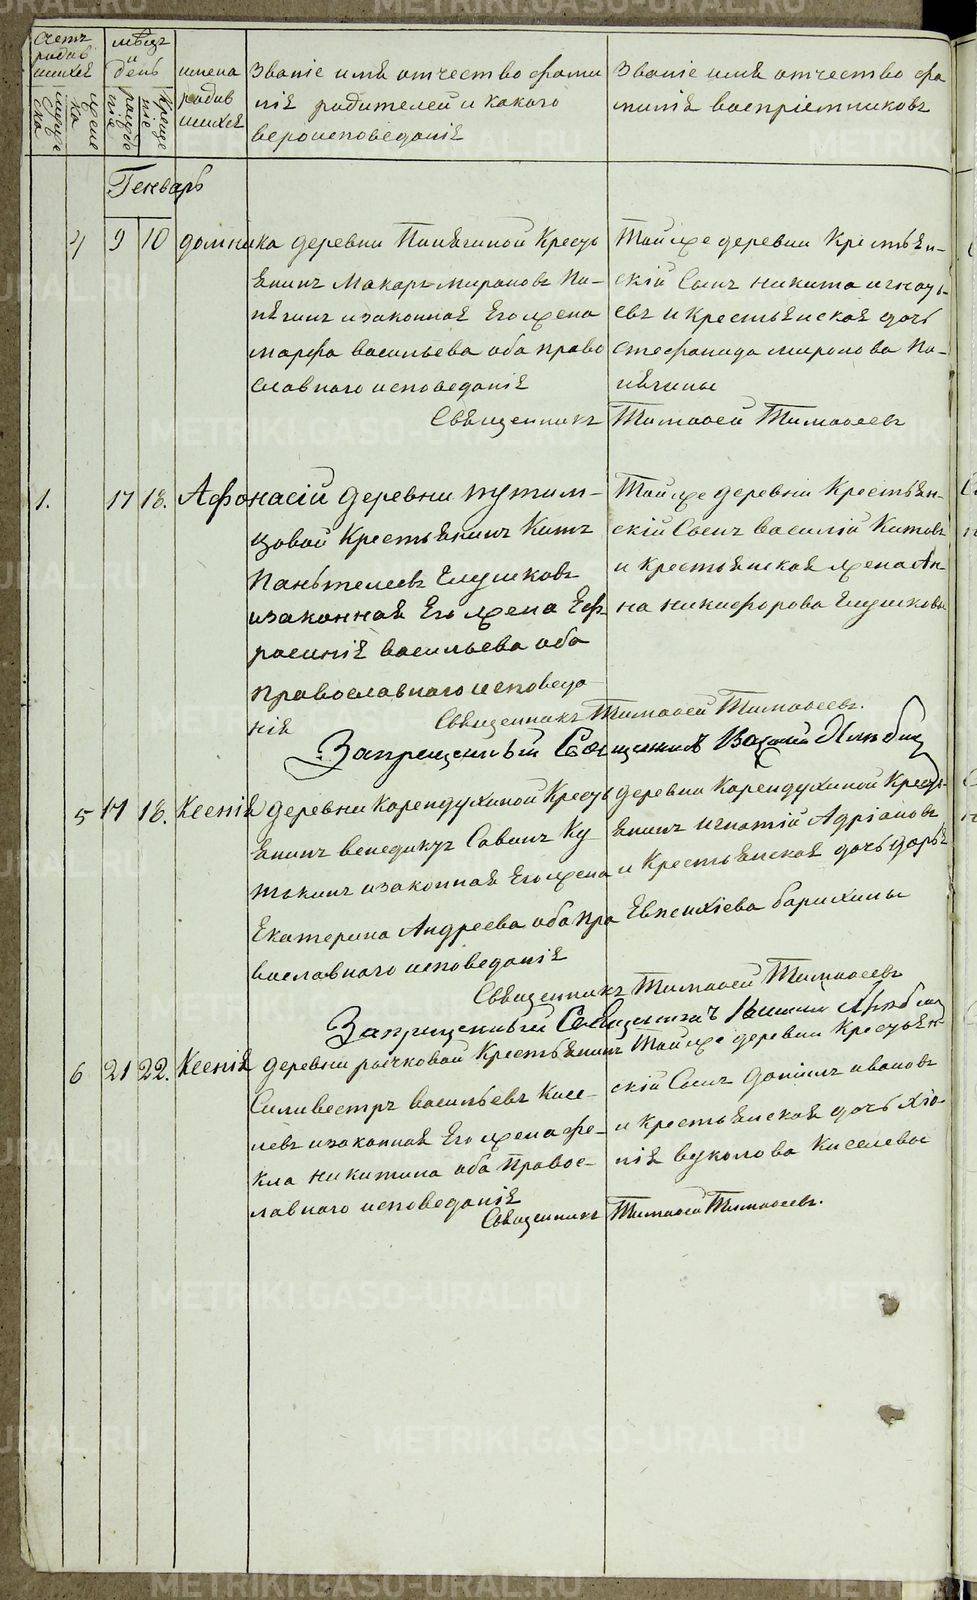 Счетъ родившихся
мѣсяцъ и день
имена родившихся
Званіе имя отчество фами
лія родителей и какого
вероисповеданія
Званіе имя отчество фа
милія воспріемниковъ
мужеска
женска
рожденіе
крещеніе
Генварь
4 9 10 домника деревни Панѣгиной Кресть
янинъ Макаръ мироновъ Па-
нѣгинъ и законная Его жена
марфа васильева оба право
славнаго исповеданія
Тойже деревни Крестьян-
скій Сынъ никита игнать
евъ и Крестьянская дочь
стефанида миронова Па-
нѣгины
Священникъ Тимофей Тимофеевъ
1. 17 18. Афонасій деревни путим-
цовой Крестьянинъ Китъ
Паньтелеевъ Глушковъ
и законная Его жена Еф
росинія васильева оба
православнаго исповеда
нія
Тойже деревни Крестьян-
скій Сынъ василій Китовъ
и крестьянская жена Ан
на никифорова Глушковы
Священникъ Тимофей Тимофеевъ.
Запрещенный Священникъ
5 17 18. Ксенія деревни Карендухиной Кресть
янинъ венедиктъ Савинъ Ку
ткинъ и законная Его жена
Екатерина Андреева оба пра
вославнаго исповеданія
деревни Карендухиной Кресть-
янинъ игнатій Адріановъ
и Крестьянская дочь дарья
Евгенхіева барихины
Священникъ Тимофей Тимофеевъ
Запрещенный Священникъ
6 21 22. Ксенія деревни рычковой Крестьянинъ
Силивестръ васильевъ Кисе-
левъ и законная Его жена фе-
кла никитина оба Правос-
лавнаго исповеданія
Тойже деревни Крестьян
скій Сынъ данилъ ивановъ
и крестьянская дочь хіо-
нія вуколова Киселевы
Священникъ Тимофей Тимофеевъ.
METRIKI.GASO-URAL.RU